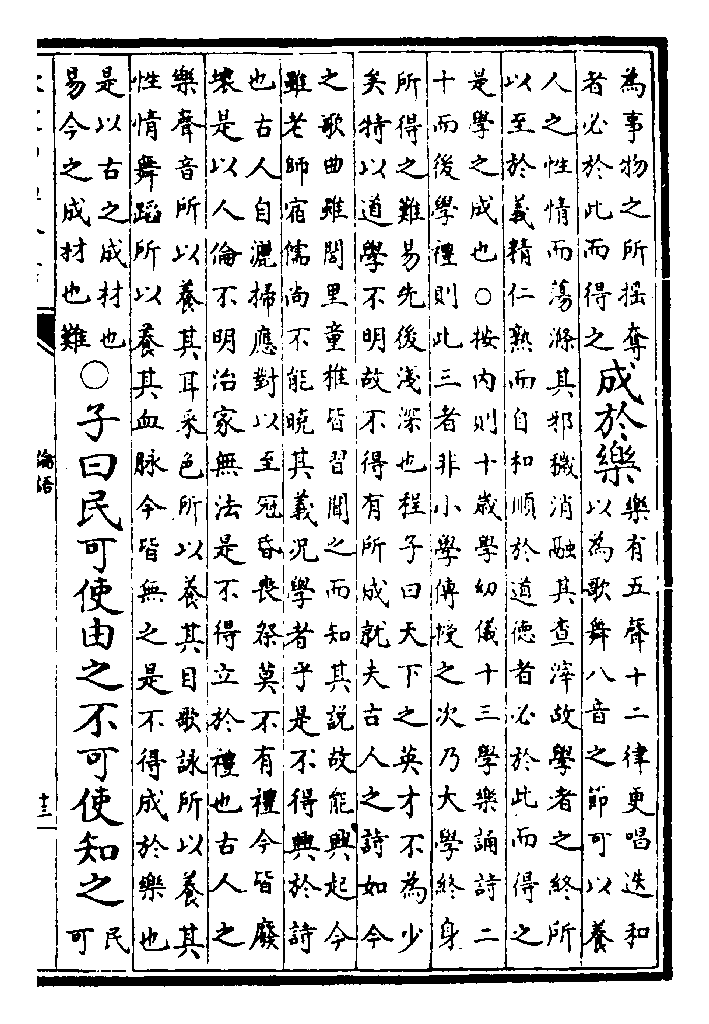 為事物之所搖奪
者必於此而得之
成於樂
樂有五聲十二律更唱迭和
以為歌舞八音之節可以養
人之性情而蕩滌其邪穢消融其查滓故學者之終所
以至於義精仁熟而自和順於道德者必於此而得之
是學之成也○按内則十歲學幼儀十三學樂誦詩二
十而後學禮則此三者非小學傳授之次乃大學終身
所得之難易先後淺深也程子曰天下之英才不為少
矣特以道學不明故不得有所成就夫古人之詩如今
之歌曲雖閭里童稚皆習聞之而知其說故能興起今
雖老師宿儒尚不能曉其義況學者乎是不得興於詩
也古人自灑掃應對以至冠昏喪祭莫不有禮今皆廢
壞是以人倫不明治家無法是不得立於禮也古人之
樂聲音所以養其耳采色所以養其目歌詠所以養其
性情舞蹈所以養其血脉今皆無之是不得成於樂也
是以古之成材也
易今之成材也難
○子曰民可使由之不可使知之
民
可
論語
十三